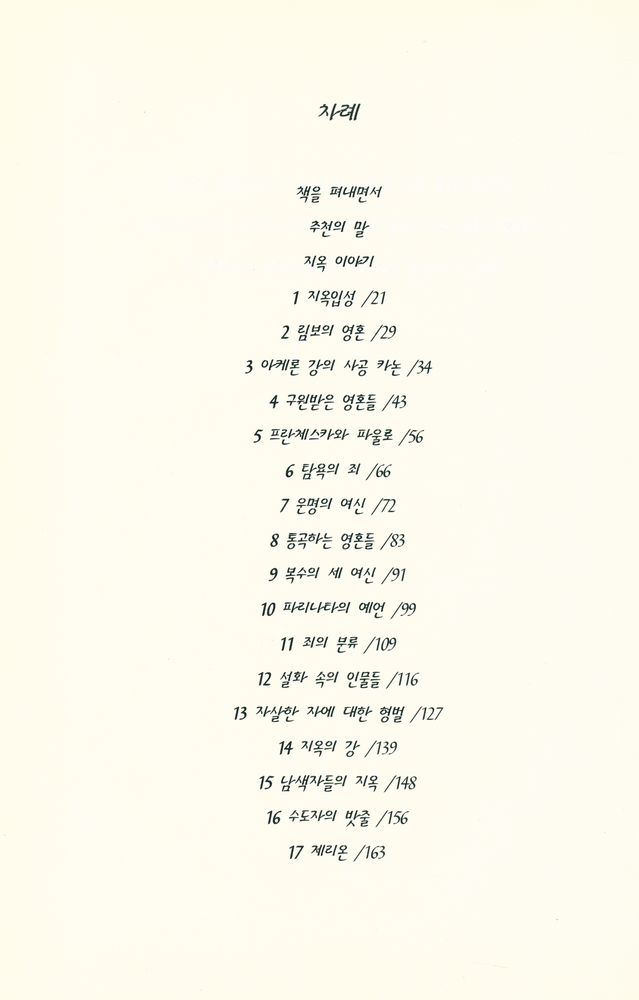 차례
책을 펴내면서
추천의 말
지옥 이야기
1 지옥입성 /21
2 림보의 영혼 /29
3 아케론 강의 사공 카논 /34
4 구원받은 영혼들 /43
5 프란체스카와 파울로 /56
6 탐욕의 죄 /66
7 운명의 여신 /72
8 통곡하는 영혼들 /83
9 복수의 세 여신 /91
10 파리나타의 예언 /99
11 죄의 분류 /109
12 설화 속의 인물들 /116
13 자살한 자에 대한 형벌 /127
14 지옥의 강 /139
15 남색자들의 지옥 /148
16 수도자의 밧줄 /156
17 제리온 /163